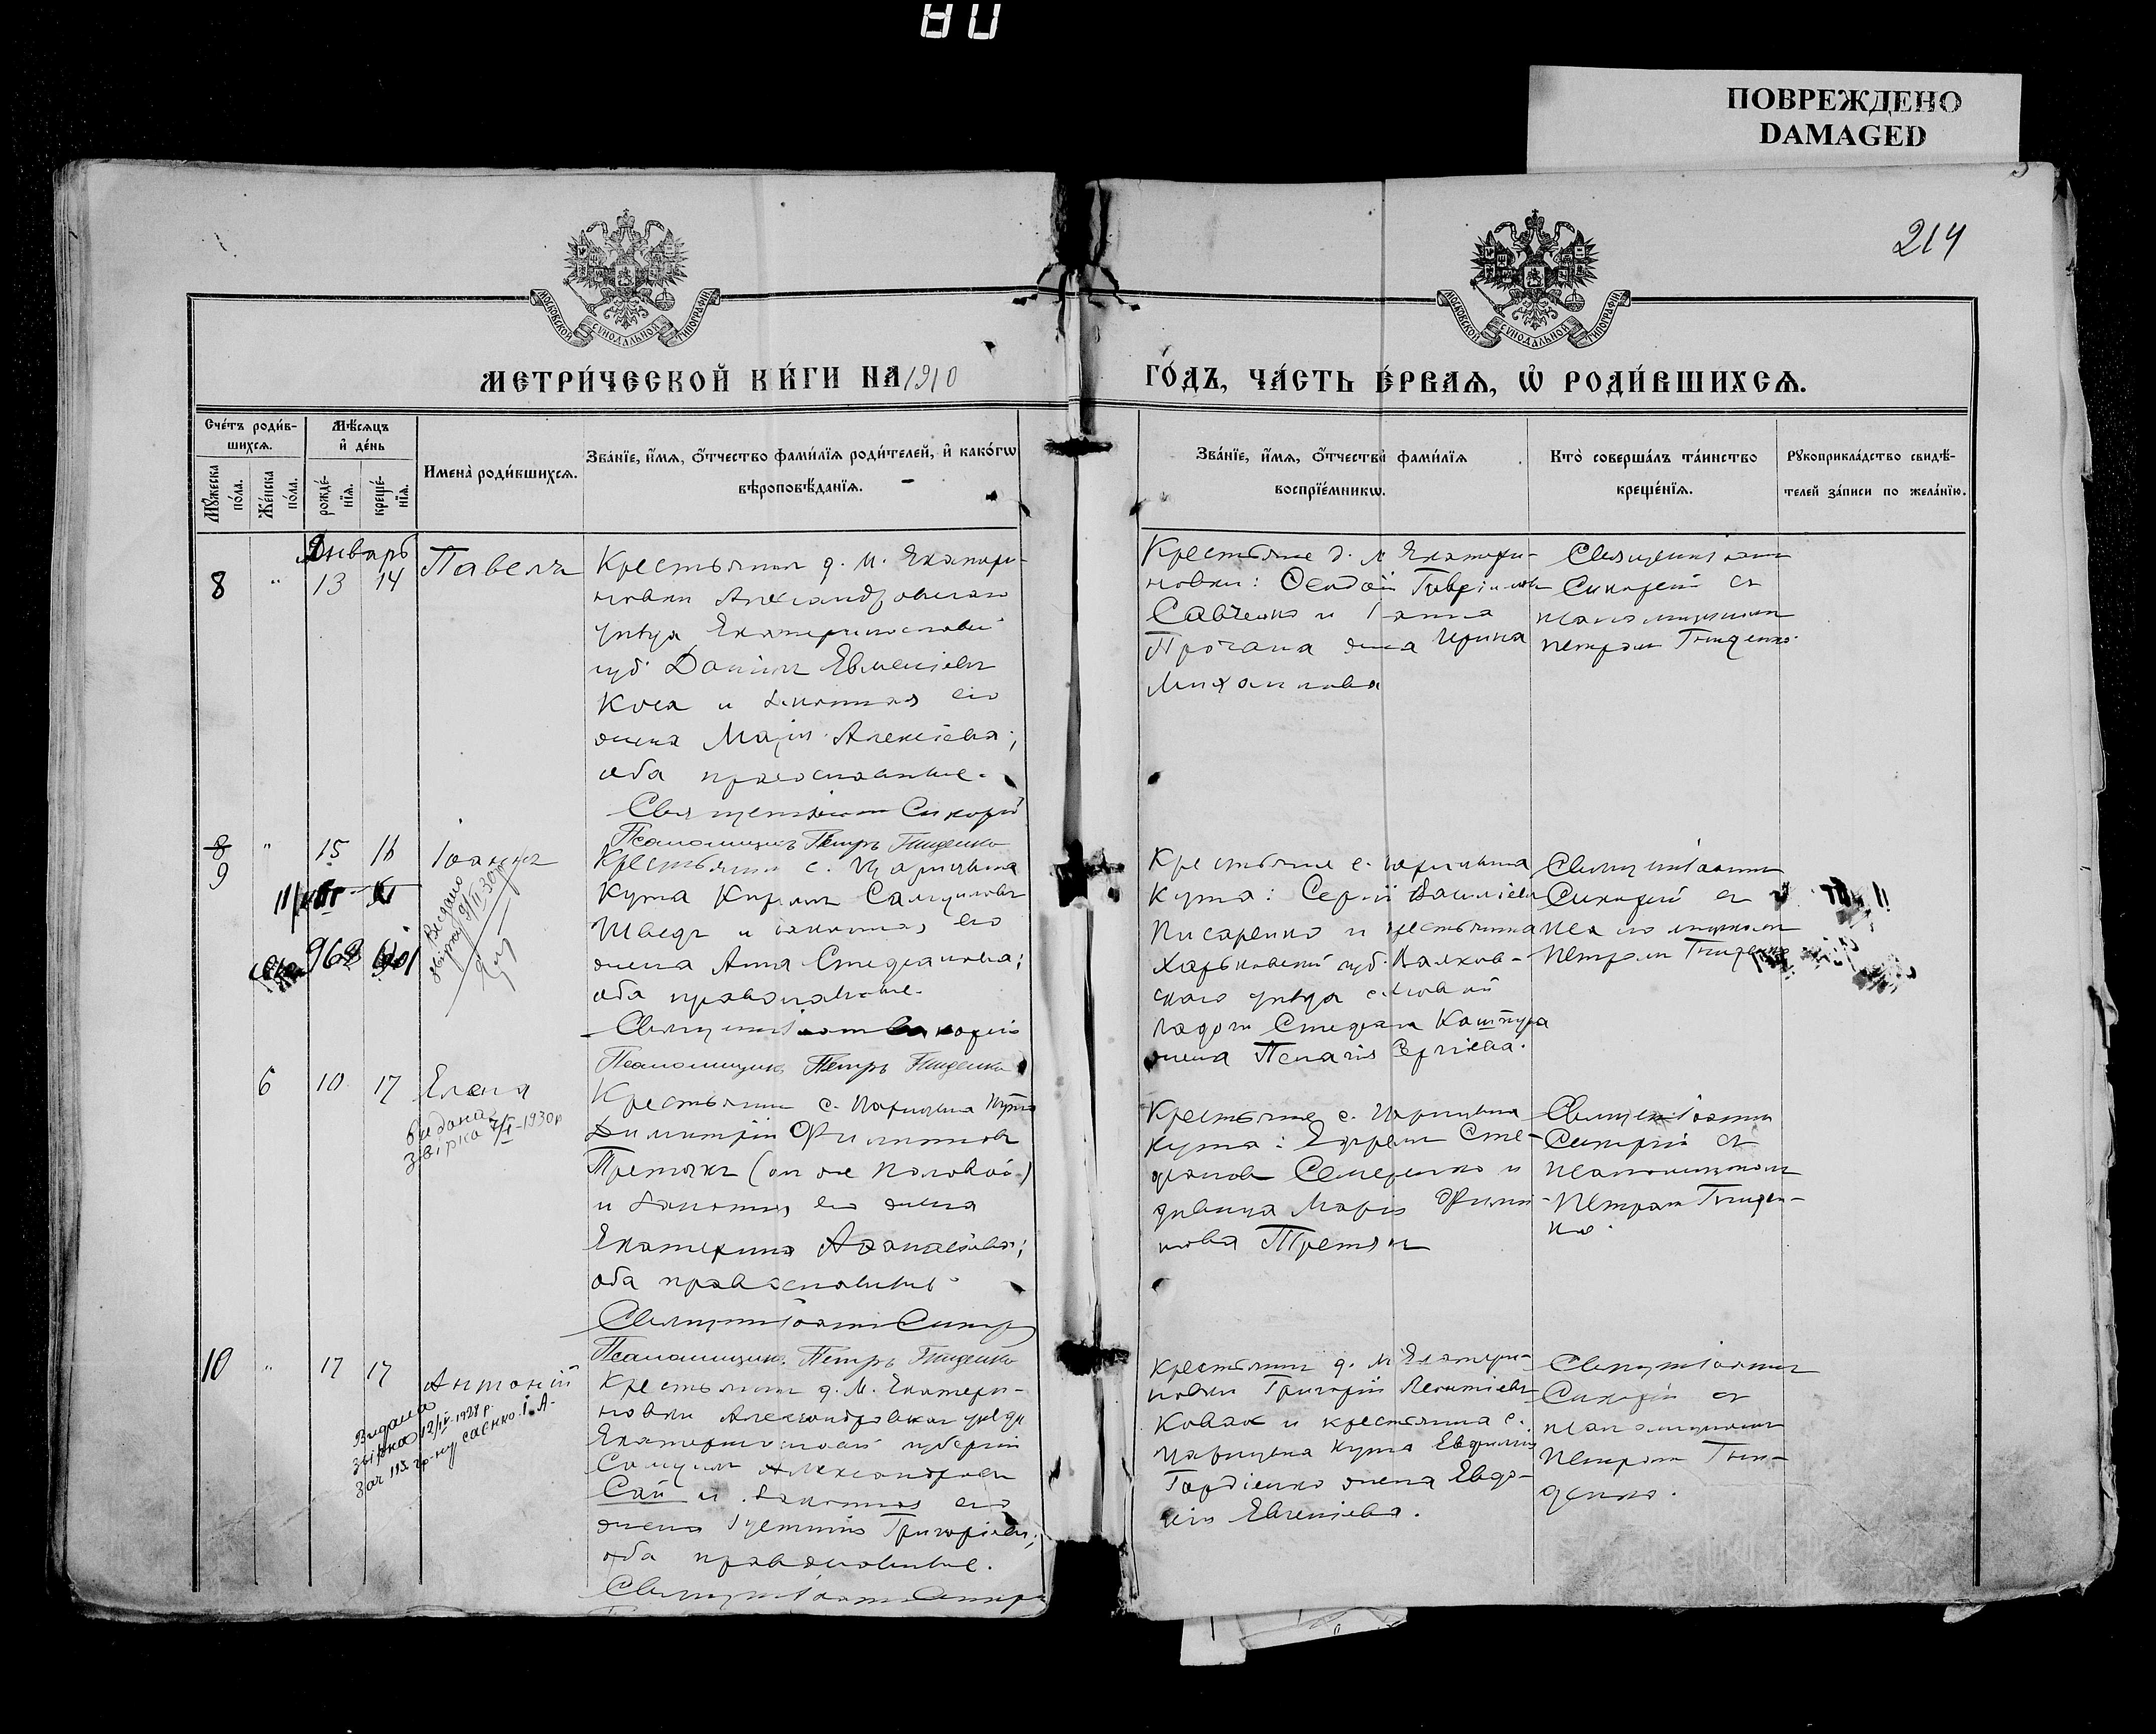 80
ПОВРЕЖДЕНО
DAMAGED
214
МОСКОВСКОЙ СѴНОДАЛЬНОЙ ТИПОГРАФІИ
МОСКОВСКОЙ СѴНОДАЛЬНОЙ ТИПОГРАФІИ
МЕТРИ́ЧЕСКОЙ КИ́ГИ НА 1910
ГО́ДЪ, ЧА́СТЬ Е́РВАѦ, Ѡ҆ РОДИ́ВШИХСѦ.
Сче́тъ роди́в-
шихсѧ.
Мꙋ́жеска
по́ла.
Же́нска
по́ла.
Мѣ́сѧцъ
и҆ де́нь
рожде́-
нїѧ.
креще́-
нїѧ.
Имена̀ роди́вшихсѧ.
Зва́нїе, и҆́мѧ, ѻ҆́тчество фами́лїѧ роди́телей, и҆ како́гѡ
вѣроповѣ́данїѧ.
Зва́нїе, и҆́мѧ, ѻ҆́тчество фами́лїѧ
воспрїе́мникѡ.
Кто̀ соверша́лъ та́инство
креще́нїѧ.
Рꙋкоприкла́дство свидѣ́-
телей за́писи по жела́нїю.
Январь
8 " 13 14 Павелъ
Крестьянин д. М. Екатери-
новки Александровскаго
уѣзда Екатеринослав.
губ. Даніил Евменіевъ
Коса и законная его
жена Марія Алексіева;
оба православные.
Священник Сикорій
Псаломщикъ Петръ Гниденко
Крестьяне д. М. Екатери-
новки: Гавріиловъ
Савченко и Ганна
жена Ирина
Михаилова
Сикорій съ
псаломщиком
Петром Гниденко.
8
9 " 15 16 Іоаннъ
Видано
Крестьянин с. Царицына
Кута Кирилл Самуиловъ
Шведъ и законная его
жена Анна Стефанова;
оба православные.
Псаломщикъ Петръ Гниденко
Крестьяне с. Царицына
Кута: Сергій Василіевъ
Писаренко и крестьянина
Харьковской губ. Валков-
скаго уѣзда с. Новой
Стефана
жена Пелагія Сергіева.
Сикорій съ
псаломщиком
Петром Гниденко
6 10 17 Елена
Видана
звірка 1930 р
Крестьянин с. Царицына Кута
Димитрій Филиппов
Третьякъ (он же Половой)
и законная его жена
Екатерина Афанасіева;
оба православные
Псаломщикъ Петръ Гниденко
Крестьяне с. Царицына
Кута: Ефрем Сте-
фанов Семеренко и
дѣвица Марія Филип-
пова Третьяк
Сикорій съ
псаломщиком
Петром Гниден-
ко.
10 " 17 17 Антоній
Видана
звірка 12/IV-1928 р.
гр-ну Саенко. І. А-
Крестьянин д. М. Екатери-
новки Александровскаго уѣзда
Екатеринославской губерніи
Самуил Александров
Сай и законная его
жена Іустинія Григоріева;
оба православные.
Крестьянин д. М. Екатери-
новки Григорій Леонтіевъ
Ковак и крестьянина с.
Царицына Кута Евфимія
Гордіенко жена Евдо-
кія Евгеніева.
Сикорій съ
псаломщиком
Петром Гни-
денко.